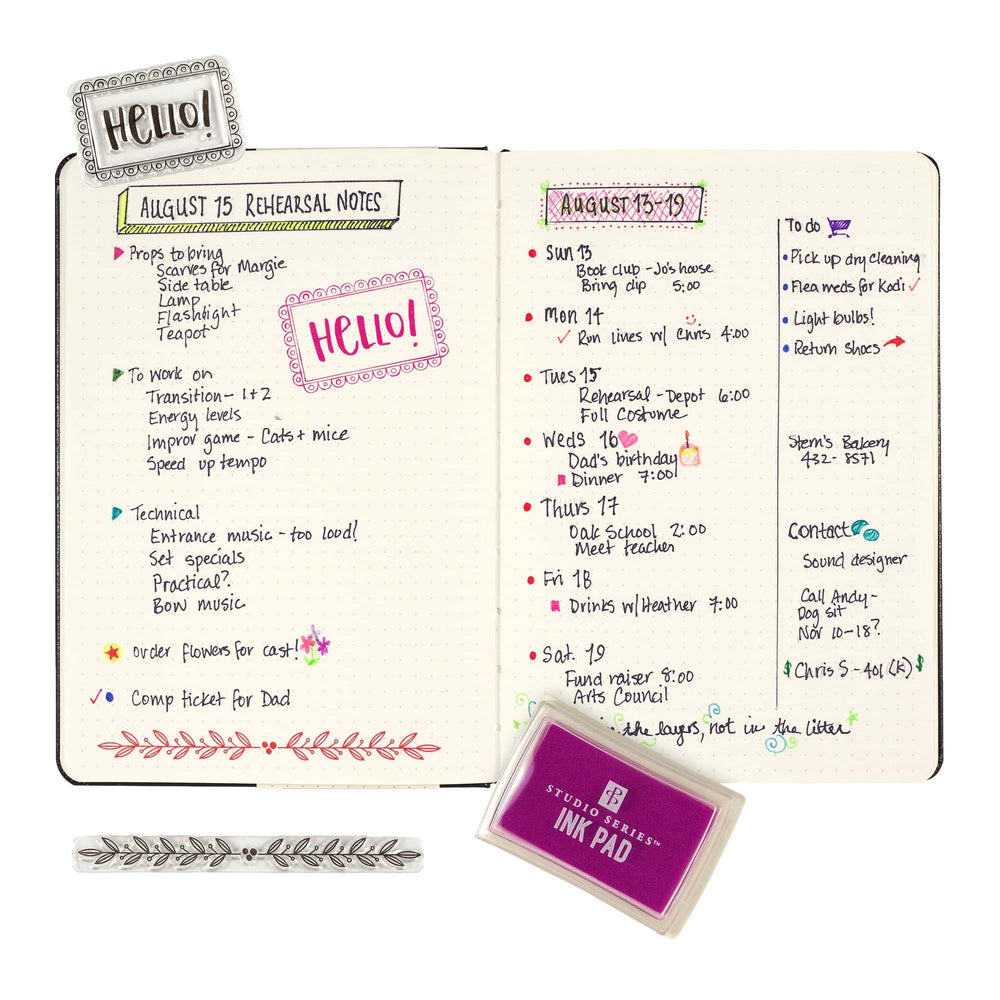 HELLO!
AUGUST 15 REHEARSAL NOTES
Props to bring
Scarves for Margie
Side table
Lamp
Flashlight
Teapot
HELLO!
To work on
Transition - 1+2
Energy levels
Improv game - Cats + mice
Speed up tempo
Technical
Entrance music - too loud!
Set specials
Practical?
Bow music
order flowers for cast!
Comp ticket for Dad
AUGUST 13-19
Sun 13
Book club - Jo's house
Bring dip 5:00
Mon 14
Run lines w/ Chris 4:00
Tues 15
Rehearsal - Depot 6:00
Full Costume
Weds 16
Dad's birthday
Dinner 7:00
Thurs 17
Oak School 2:00
Meet teacher
Fri 18
Drinks w/Heather 7:00
Sat. 19
Fund raiser 8:00
Arts Council
To do
Pick up dry cleaning
Flea meds for Kodi
Light bulbs!
Return shoes
Stern's Bakery
432-8571
Contact
Sound designer
Call Andy -
Dog sit
Nov 10-18?
$ Chris S - 401(K) $
the layers, not in the litter
STUDIO SERIES™
INK PAD